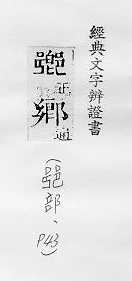 經典文字辨證書
正
鄉通
(𨛜部、P43)